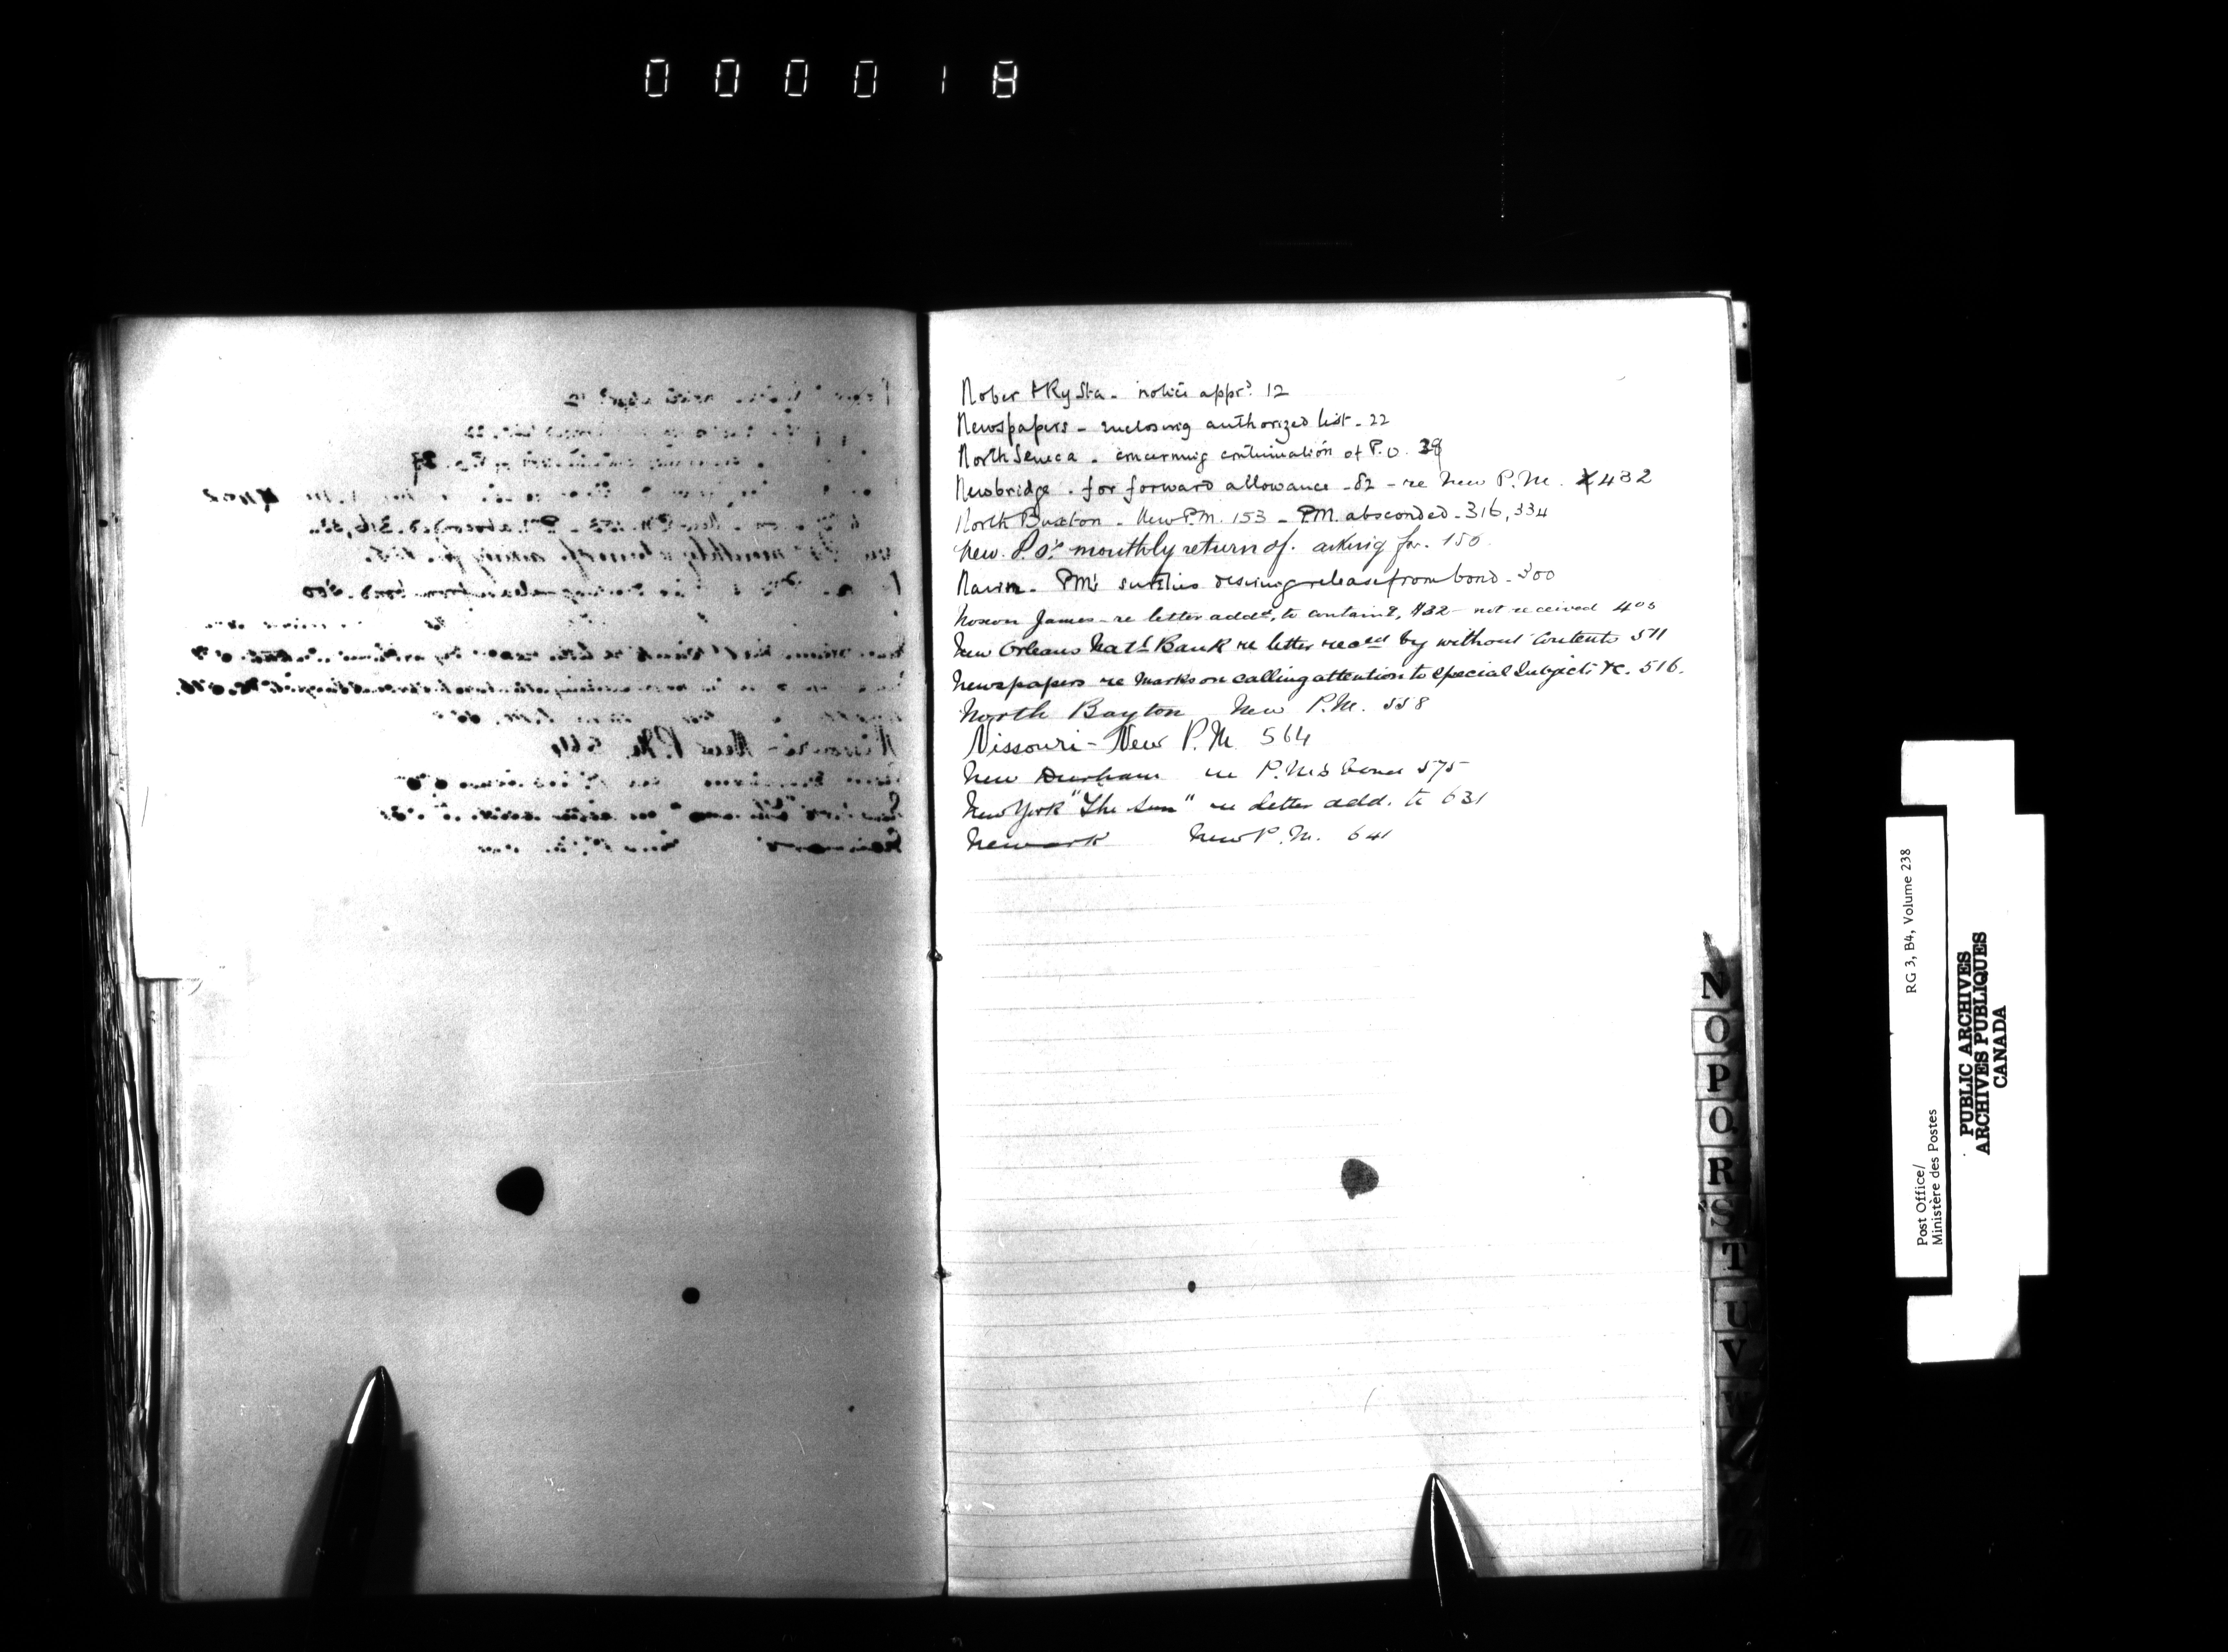 000018
Nober & Ry Sta. - notice appr? 12
Newspapers - enclosing authorized list - 22
North Seneca - concerning continuation of P.O. 39
Newbridge - for forward allowance - 82 - re New P.M. 432
North Buxton - New P.M. 153 - P.M. absconded - 316, 334
New P.O's monthly return of. asking for. 156
Nairn - PM's sureties desiring release from bond - 300
James - re letter add'd, to contain'g, $32 - not received
New Orleans Nat'l Bank re letter rec'ed by without contents 511
Newspapers re Marks on calling attention to Special Subjects &c. 516.
North Bayton New P.M. 558
Nissouri - New P.M. 564
New Durham re P.M.'s Bond 575
New York "The Sun" re letter add. to 631
Newark New P.M. 641
N
O
P
Q
R
S
T
U
V
W
Post Office/
Ministère des Postes
RG 3, B4, Volume 238
PUBLIC ARCHIVES
ARCHIVES PUBLIQUES
CANADA